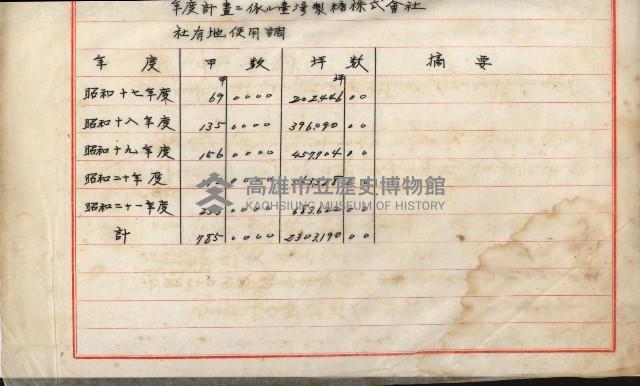 年度計畫ニ係ル臺灣製糖株式會社
社有地使用調
年度 甲数 坪数 摘要
甲 坪
昭和十七年度 69 0000 202,446 00
昭和十八年度 135 0000 396,090 00
昭和十九年度 156 0000 457,704 00
昭和二十年度 0000
昭和二十一年度 0000 00
計 785 0000 2303,190 00
高雄市立歷史博物館
KAOHSIUNG MUSEUM OF HISTORY